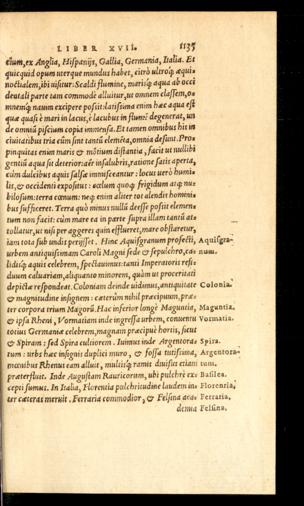 LIBER XVII. 1135
ctum, ex Anglia, Hispanijs, Gallia, Germania, Italia. Et
quicquid opum uterque mundus habet, citrò ultroq́; æqui-
noctialem, ibi uisitur: Scaldi flumine, marisq́; aqua ab occi
dentali parte tam commodè alluitur, ut omnem classem, o-
mnemq́; nauum excipere possit: latissima enim hæc aqua est
quæ quasi è mari in lacus, è lacubus in flumẽ degenerat, un
de omniũ piscium copia immensa. Et tamen omnibus his in
ciuitatibus tria cùm sint tantũ elemẽta, omnia desunt. Pro-
pinquitas enim maris & mõtium distantia, facit ut nullibi
gentiũ aqua sit deterior: aër insalubris, ratione satis aperta,
cùm dulcibus aquis salsæ immisceantur: locus uerò humi-
lis, & occidenti expositus: cœlum quoq; frigidum atq; nu-
bilosum: terra tamen: neq; enim aliter tot alendis homini-
bus sufficeret. Terra quò minus nullâ deesse possit elemen-
tum non facit: cùm mare ea in parte supra illam tanti at-
tollatur, ut nisi per aggeres quin efflueret, mare obstaretur,
iam tota sub undis perijsset. Hinc Aquisgranum profecti, Aquisgra-
urbem antiquissimam Caroli Magni sede & sepulchro, ca- num.
lidisq́; aquis celebrem, spectauimus: tanti Imperatoris resi-
duum caluariam, aliquanto minorem, quàm ut proceritati
depictæ respondeat. Coloniam deinde uidimus, antiquitate Colonia.
& magnitudine insignem: cæterùm nihil præcipuum, præ-
ter corpora trium Magorũ. Hac inferior longè Maguntia, Maguntia.
& ipsa Rheni, Vormatiam inde ingressi urbem, conuentu Vormatia.
totius Germaniæ celebrem, magnam præcipuè hortis, sicut
& Spiram: sed Spira cultiorem. Iuimus inde Argentora- Spira.
tum: urbs hæc insignis duplici muro, & fossa tutissima, Argentora-
mœnibus Rhenus eam alluit, multisq́; ramis diuisus etiam tum.
præterfluit. Inde Augustam Rauricorum, ubi pulchrè ex- Basilea.
cepti sumus. In Italia, Florentia pulchritudine laudem in- Florentia.
ter cæteras meruit. Ferraria commodior, & Felsina àea- Ferraria.
demia Felsina.